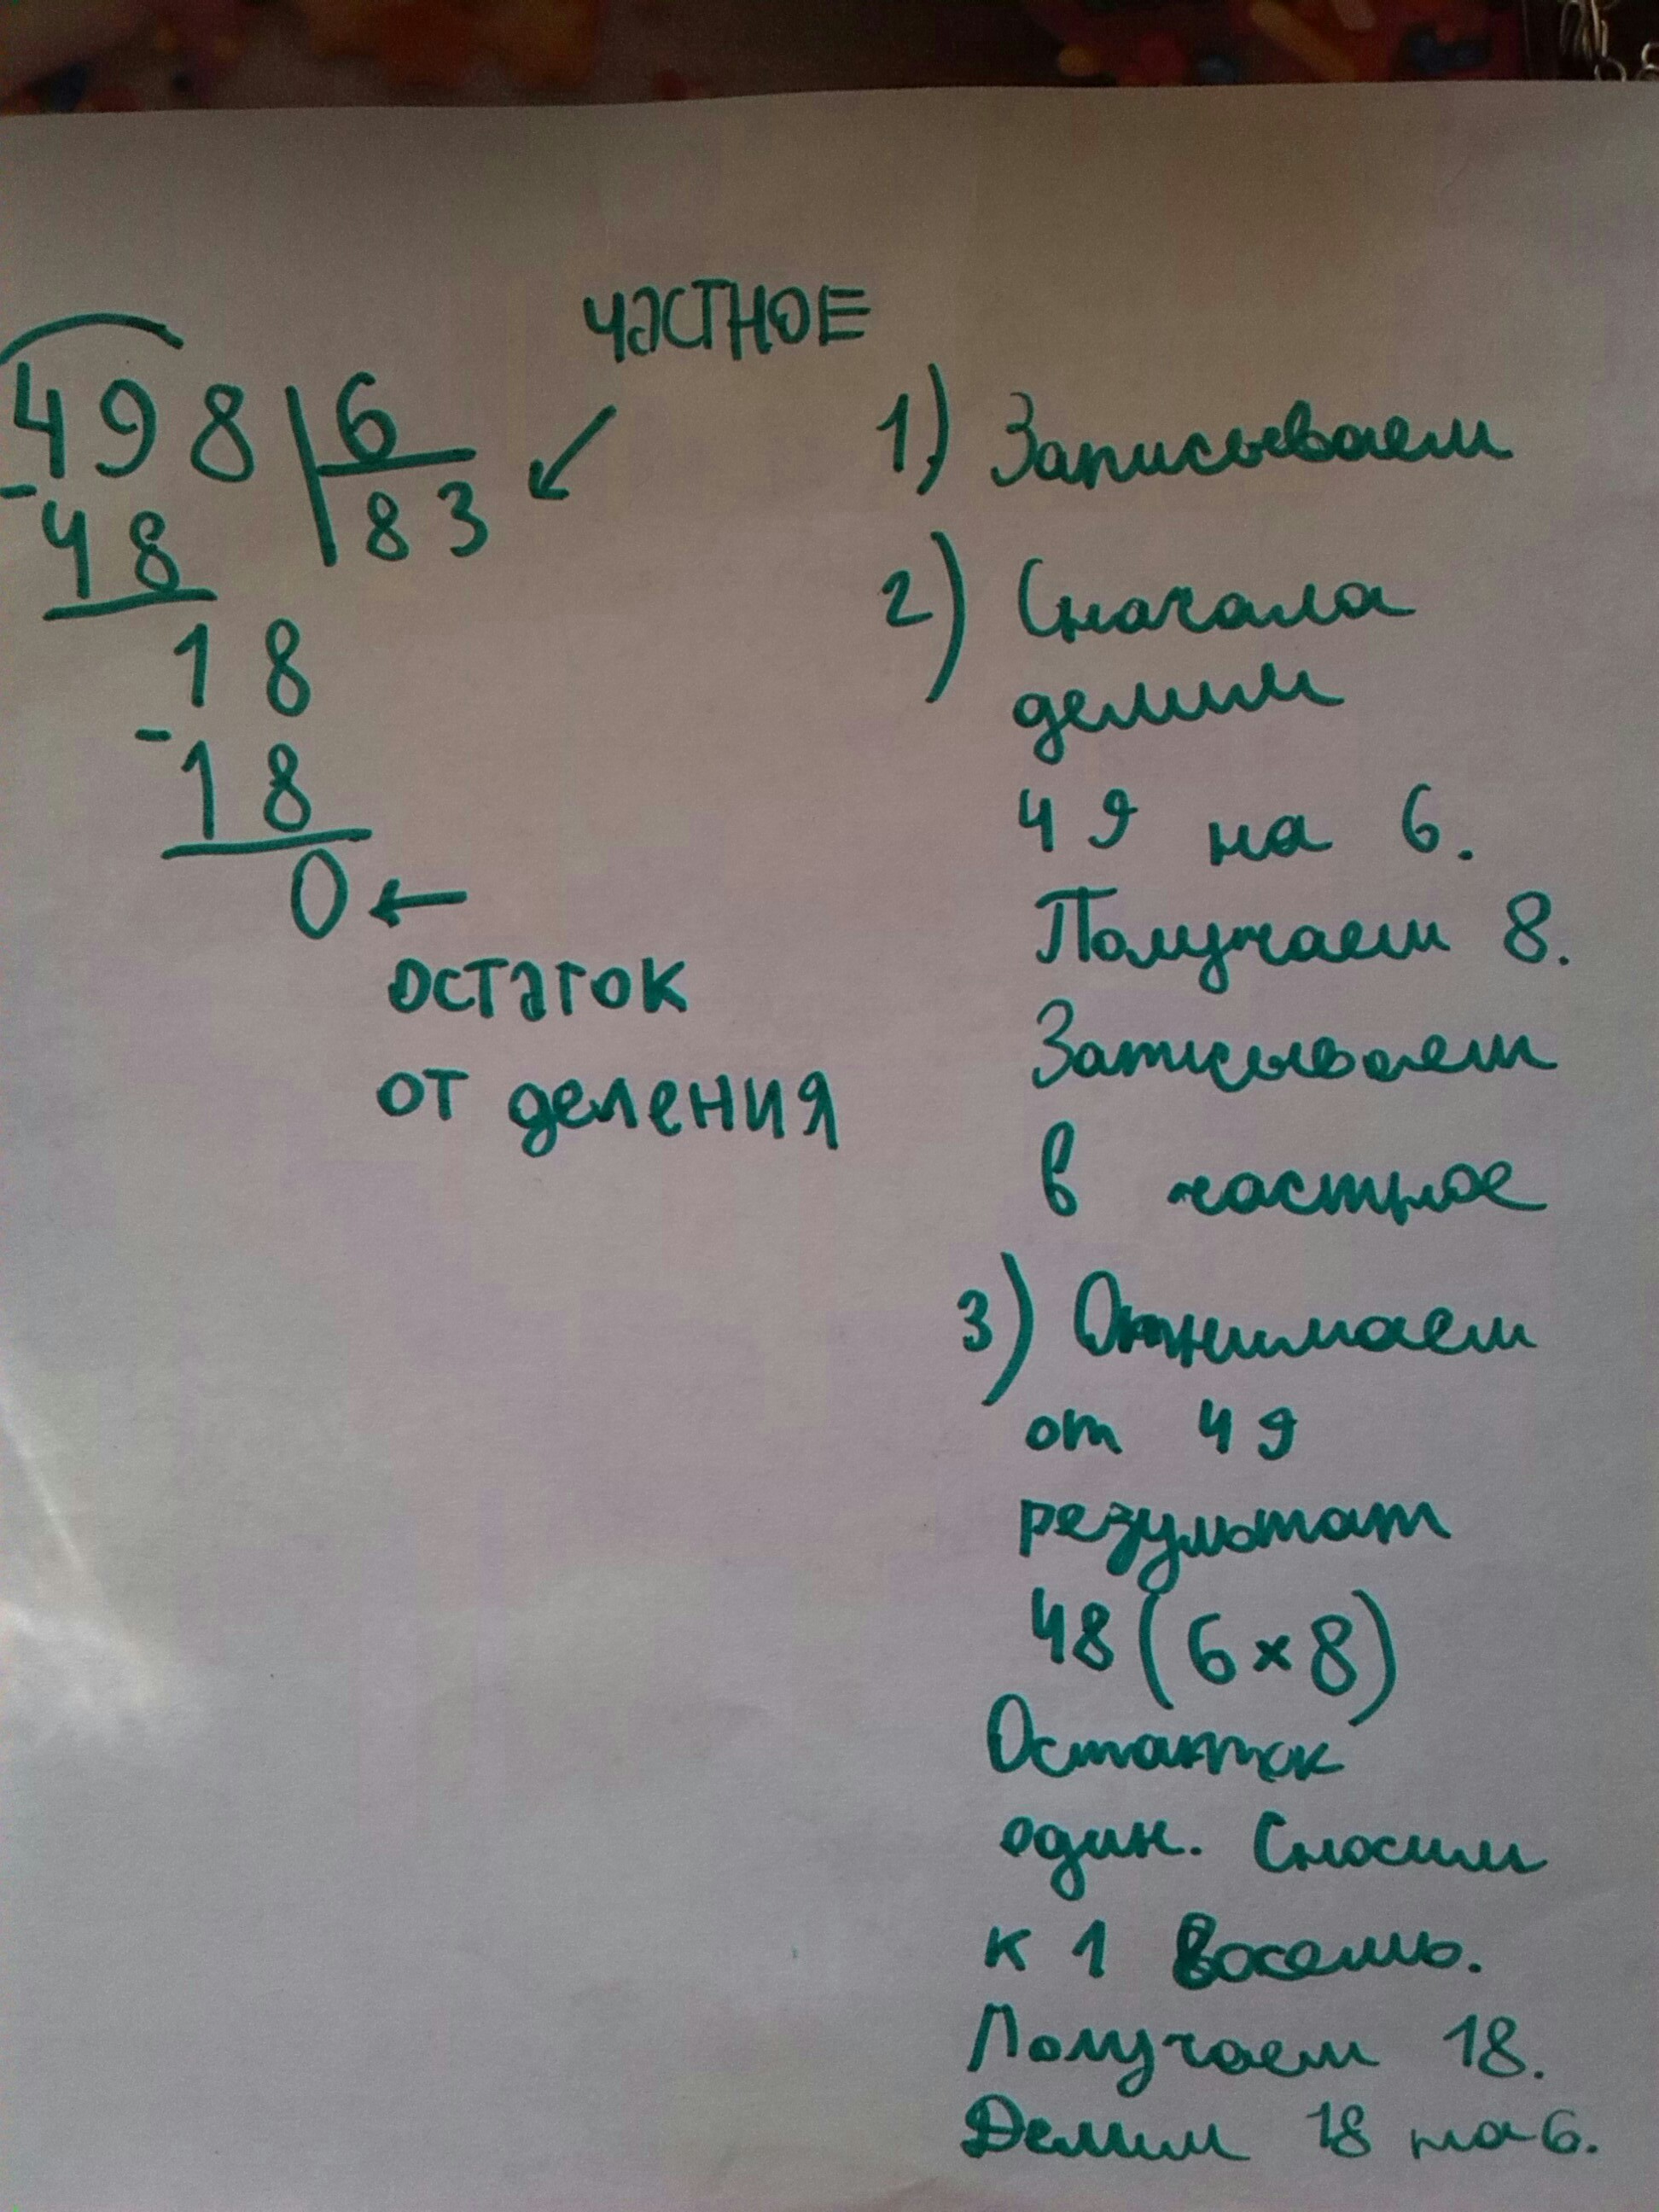 частное
498 6
- 48 83
18
- 18
0
остаток
от деления
1) Записываем
2) Сначала
делим
49 на 6.
Получаем 8.
Записываем
в частное
3) Отнимаем
от 49
результат
48 (6 × 8)
Остаток
один. Сносим
к 1 восемь.
Получаем 18.
Делим 18 на 6.